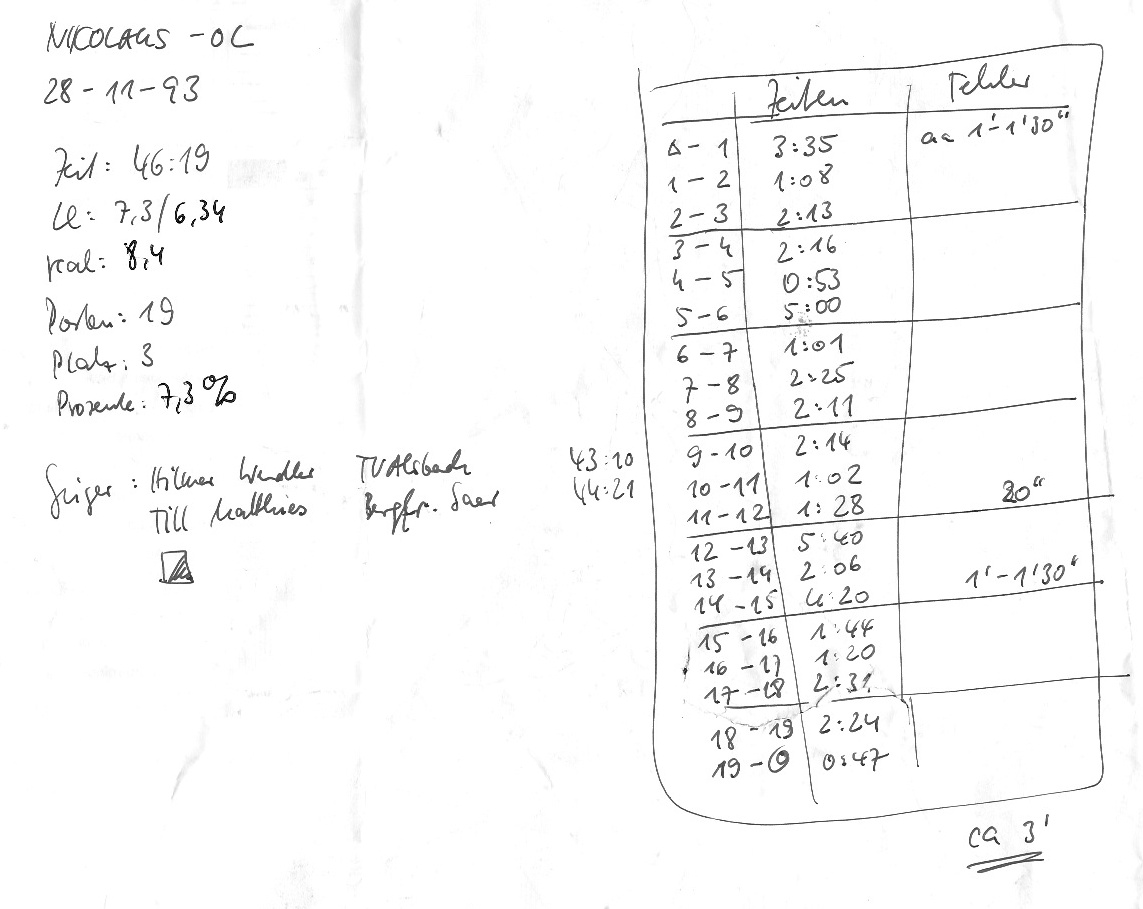 NIKOLAUS - OL
28-11-93
Zeit: 46:19
LL: 7,3/6,34
real: 8,4
Posten: 19
Platz: 3
Prozente: 7,3%
Sieger: Hilmar Wendler TV Alsbach 43:10
Till Matthies Bergfr. Saar 44:21
Zeiten Fehler
Δ - 1 3:35 ca 1'-1'30"
1 - 2 1:08
2 - 3 2:13
3 - 4 2:16
4 - 5 0:53
5 - 6 5:00
6 - 7 1:01
7 - 8 2:25
8 - 9 2:11
9 - 10 2:14
10 - 11 1:02 20"
11 - 12 1:28
12 - 13 5:40
13 - 14 2:06 1'-1'30"
14 - 15 4:20
15 - 16 1:44
16 - 17 1:20
17 - 18 2:31
18 - 19 2:24
19 - ◎ 0:47
ca 3'